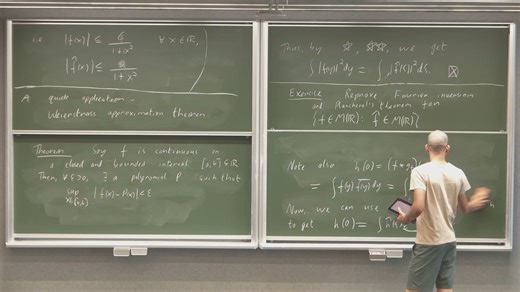 i.e. |f(x)| ≤ C/(1+x²) ∀ x∈ℝ,
|f̂(x)| ≤ /(1+x²)
A quick application -
Weierstrass approximation theorem
Theorem Say f is continuous in
a closed and bounded interval [a,b]⊆ℝ
Then, ∀ε>0, ∃ a polynomial P such that
sup x∈[a,b] |f(x)-P(x)| ≤ ε
Thus, by we get
∫|f(y)|²dy = ∫|f̂(ξ)|²dξ.
Exercise Reprove Fourier inversion
and Plancherel's theorem for
{f∈M(ℝ): f̂∈M(ℝ)}
Note also h(0) = (f*g)
= ∫f(y) f̄(y)dy = ∫
Now, we can use
to get h(0) = ∫ĥ(ξ)